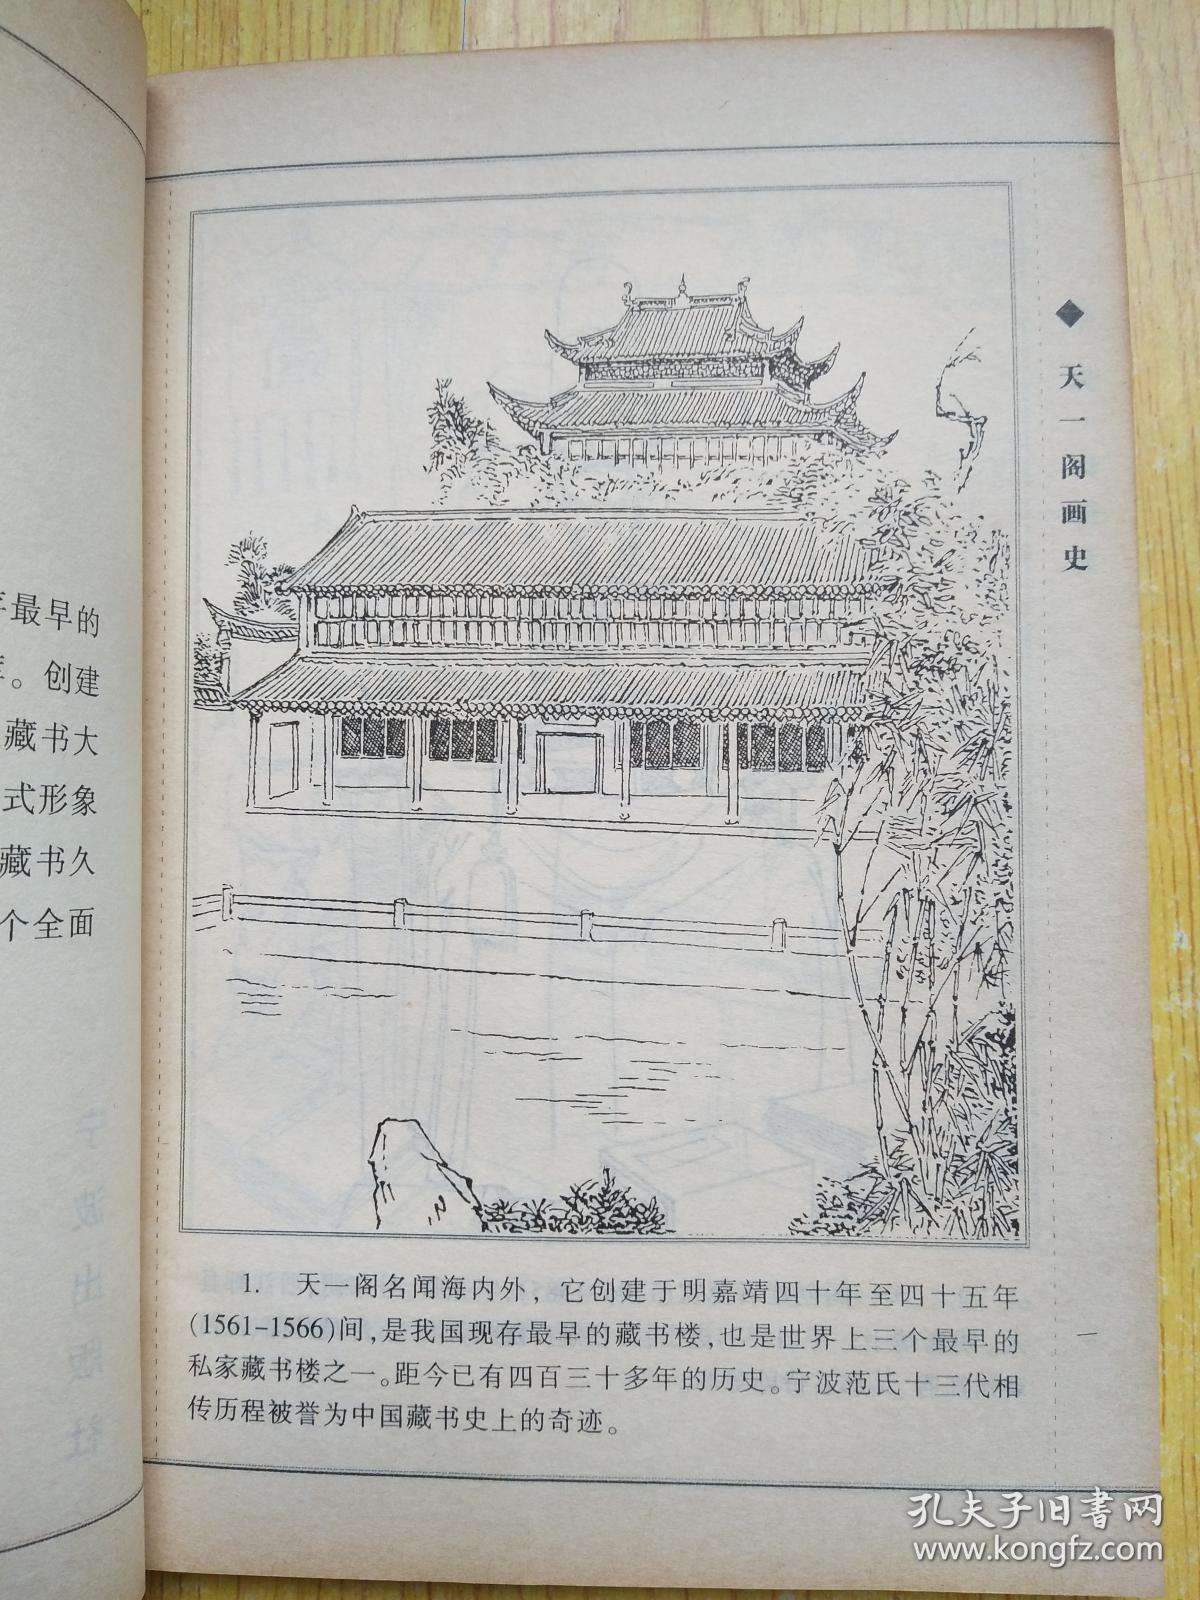 天一阁画史
1. 天一阁名闻海内外，它创建于明嘉靖四十年至四十五年
(1561-1566)间，是我国现存最早的藏书楼，也是世界上三个最早的
私家藏书楼之一。距今已有四百三十多年的历史。宁波范氏十三代相
传历程被誉为中国藏书史上的奇迹。
一
最早的
。创建
藏书大
式形象
藏书久
个全面
宁波出版社
孔夫子旧书网
www.kongfz.com